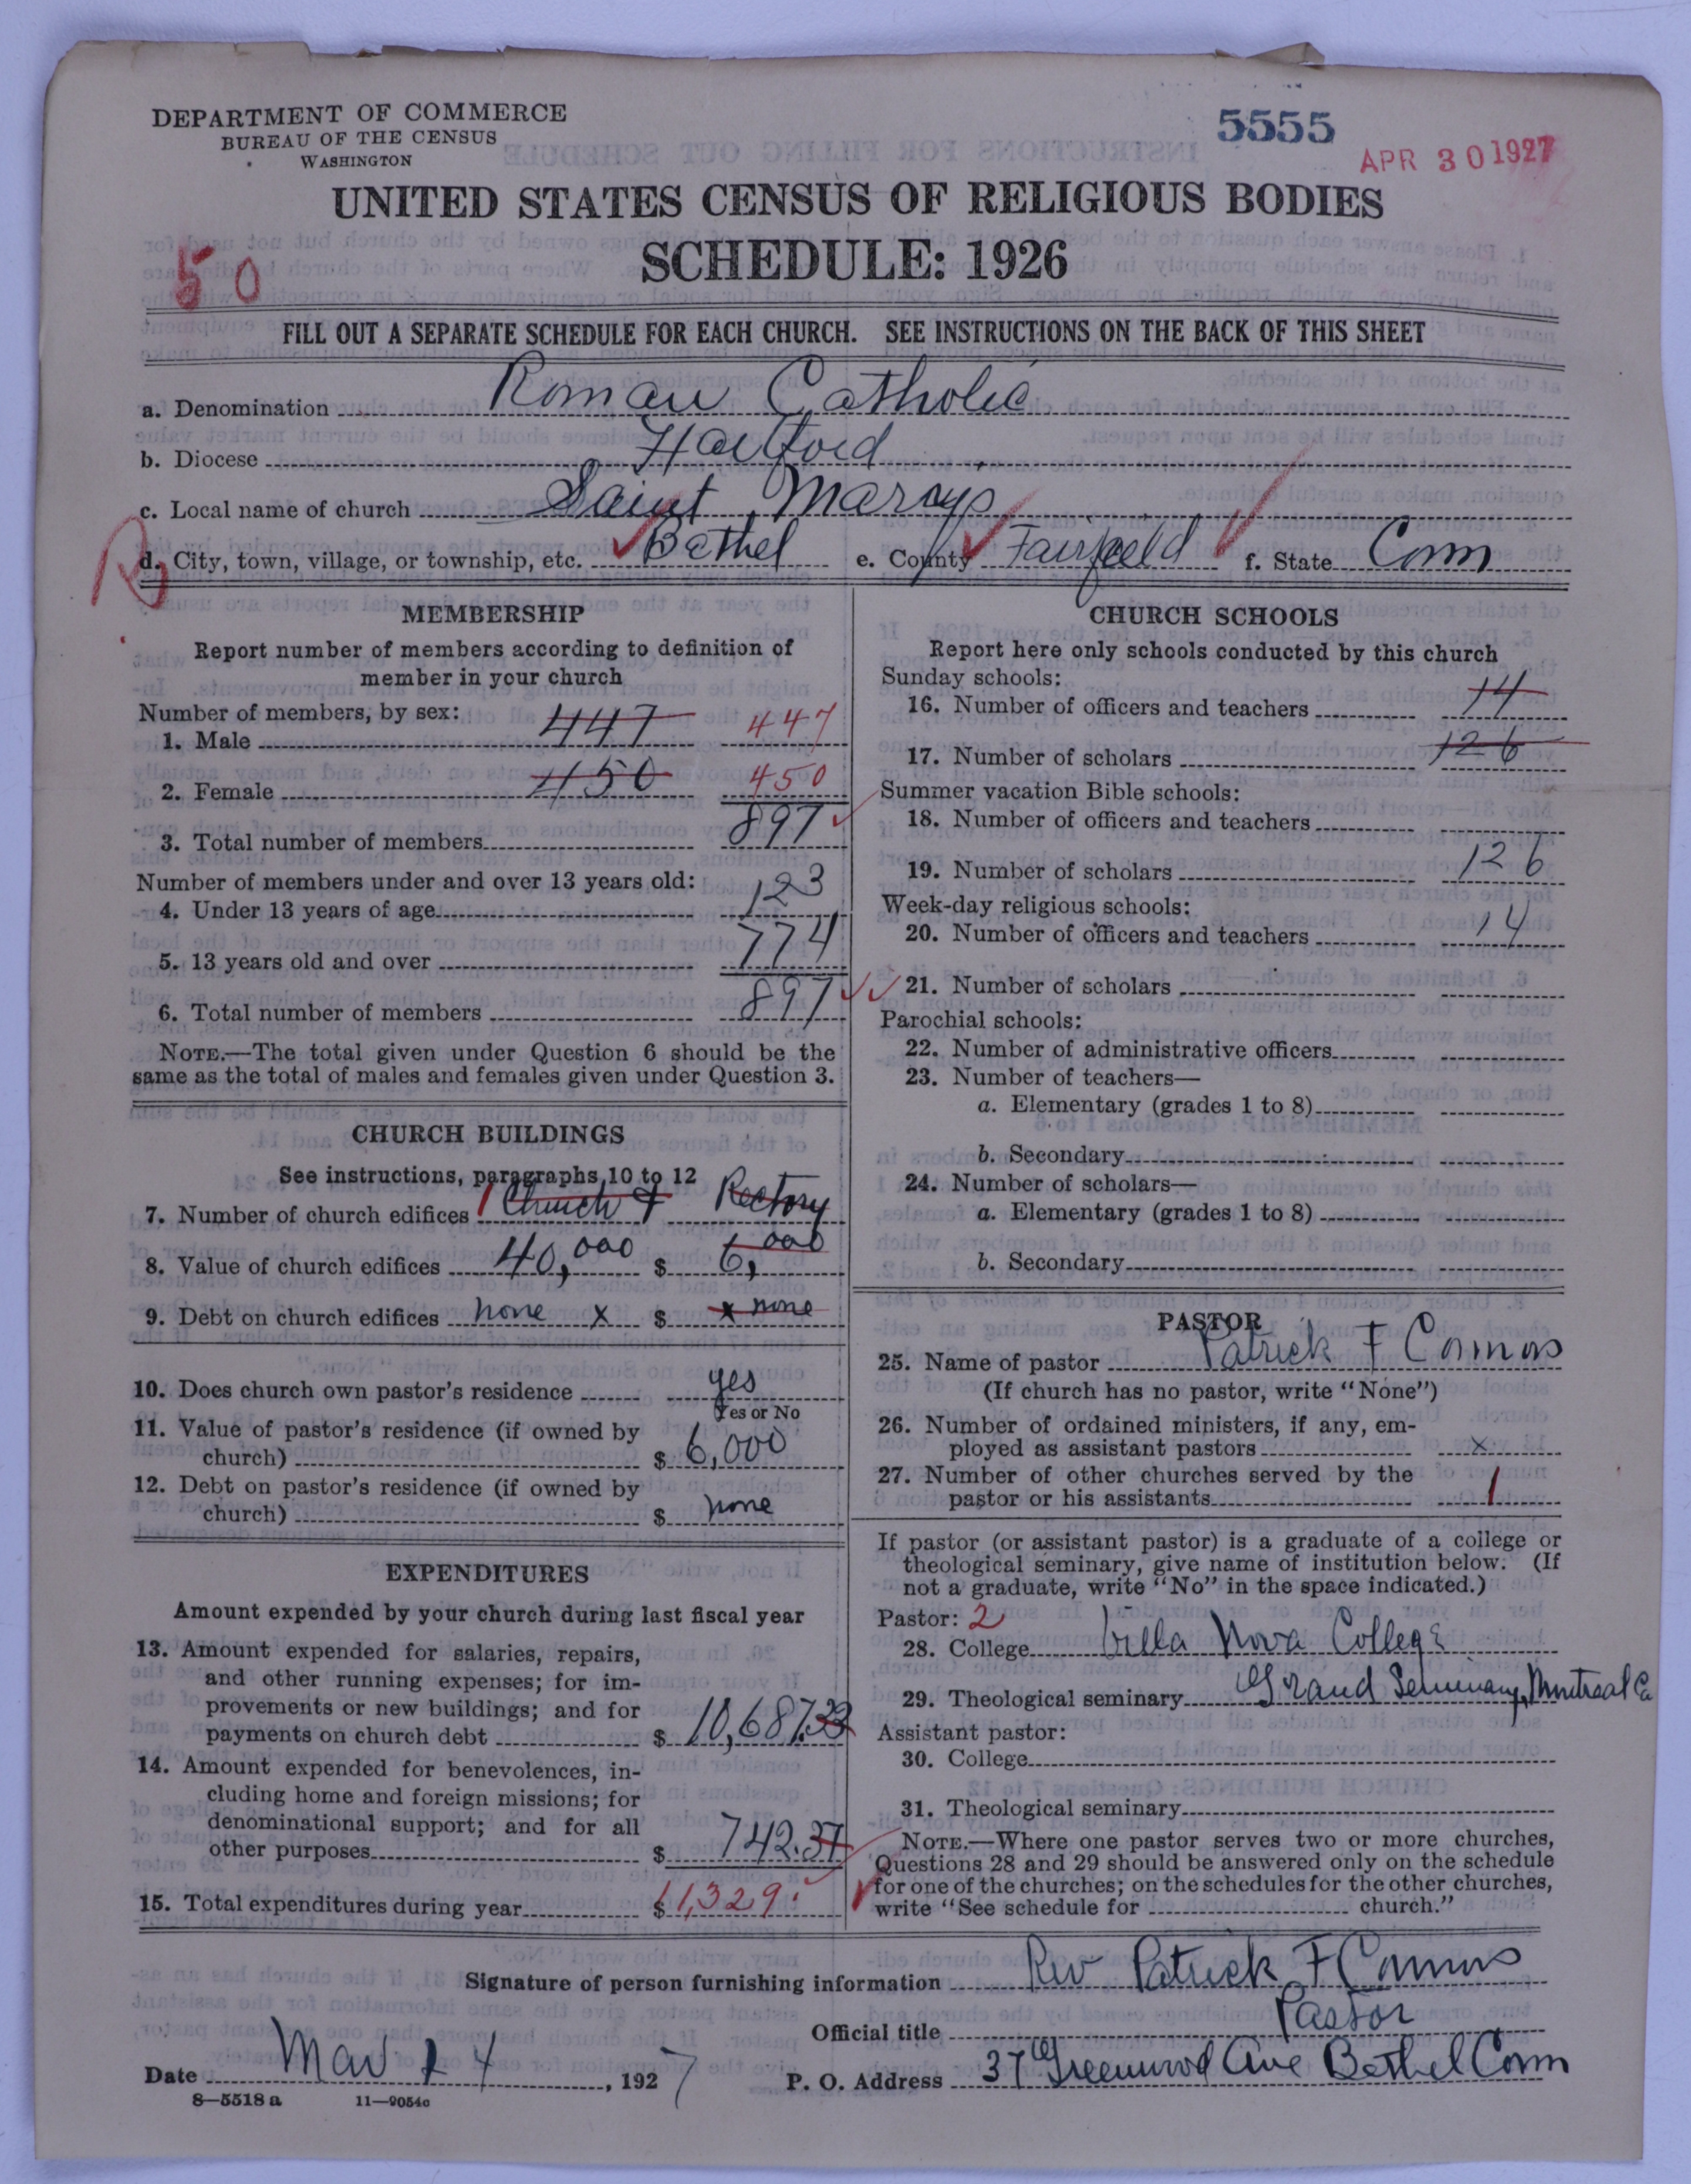 DEPARTMENT OF COMMERCE
BUREAU OF THE CENSUS
WASHINGTON
5555
APR 30 1927
UNITED STATES CENSUS OF RELIGIOUS BODIES
SCHEDULE: 1926
50
FILL OUT A SEPARATE SCHEDULE FOR EACH CHURCH. SEE INSTRUCTIONS ON THE BACK OF THIS SHEET
a. Denomination Roman Catholic
b. Diocese Hartford
c. Local name of church Saint Marys
d. City, town, village, or township, etc. Bethel e. County Fairfield f. State Conn
MEMBERSHIP
Report number of members according to definition of
member in your church
Number of members, by sex:
1. Male 447 447
2. Female 450 450
3. Total number of members 897
Number of members under and over 13 years old:
4. Under 13 years of age 123
5. 13 years old and over 774
6. Total number of members 897
NOTE.—The total given under Question 6 should be the
same as the total of males and females given under Question 3.
CHURCH BUILDINGS
See instructions, paragraphs 10 to 12
7. Number of church edifices 1 Church + Rectory
8. Value of church edifices 40,000 $ 6,000
9. Debt on church edifices none x $ x none
10. Does church own pastor's residence yes
Yes or No
11. Value of pastor's residence (if owned by
church) $ 6,000
12. Debt on pastor's residence (if owned by
church) $ none
EXPENDITURES
Amount expended by your church during last fiscal year
13. Amount expended for salaries, repairs,
and other running expenses; for im-
provements or new buildings; and for
payments on church debt $ 10,687.33
14. Amount expended for benevolences, in-
cluding home and foreign missions; for
denominational support; and for all
other purposes $ 742.37
15. Total expenditures during year $ 11,329.
CHURCH SCHOOLS
Report here only schools conducted by this church
Sunday schools:
16. Number of officers and teachers 14
17. Number of scholars 126
Summer vacation Bible schools:
18. Number of officers and teachers
19. Number of scholars 126
Week-day religious schools:
20. Number of officers and teachers 14
21. Number of scholars
Parochial schools:
22. Number of administrative officers
23. Number of teachers—
a. Elementary (grades 1 to 8)
b. Secondary
24. Number of scholars—
a. Elementary (grades 1 to 8)
b. Secondary
PASTOR
25. Name of pastor Patrick F Connors
(If church has no pastor, write "None")
26. Number of ordained ministers, if any, em-
ployed as assistant pastors x
27. Number of other churches served by the
pastor or his assistants 1
If pastor (or assistant pastor) is a graduate of a college or
theological seminary, give name of institution below. (If
not a graduate, write "No" in the space indicated.)
Pastor: 2
28. College Villa Nova College
29. Theological seminary Grand Seminary, Montreal Ca
Assistant pastor:
30. College
31. Theological seminary
NOTE.—Where one pastor serves two or more churches,
Questions 28 and 29 should be answered only on the schedule
for one of the churches; on the schedules for the other churches,
write "See schedule for church."
Signature of person furnishing information Rev Patrick F Connors
Official title Pastor
Date Mar 24, 1927 P. O. Address 37 Greenwood Ave Bethel Conn
8—5518 a 11—9054c